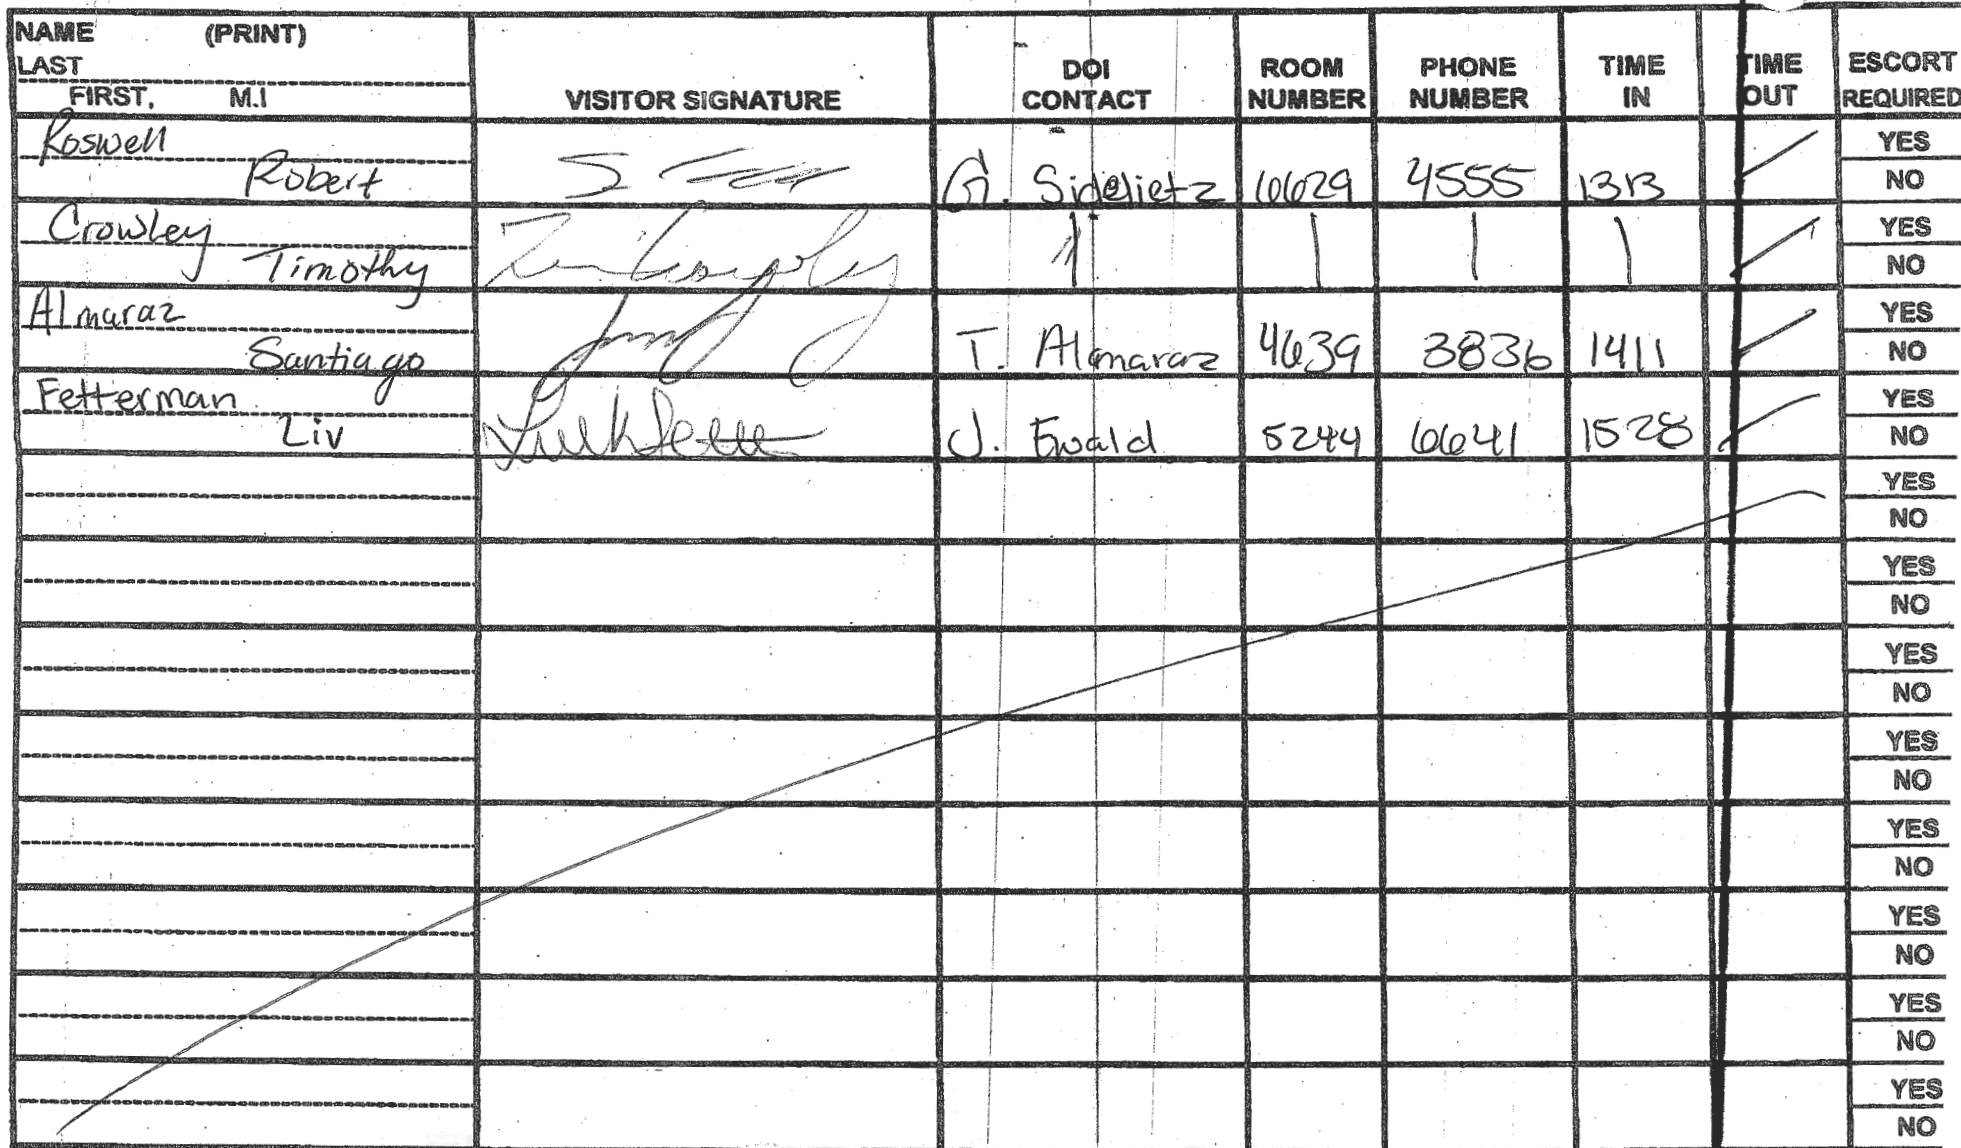 NAME (PRINT)
LAST
FIRST, M.I
VISITOR SIGNATURE
DOI CONTACT
ROOM NUMBER
PHONE NUMBER
TIME IN
TIME OUT
ESCORT REQUIRED
Roswell
Robert
G. Sidelietz 6629 4555 1313
YES
NO
Crowley
Timothy
YES
NO
Almaraz
Santiago
T. Almaraz 4639 3836 1411
YES
NO
Fetterman
Liv
J. Ewald 5244 6641 1528
YES
NO
YES
NO
YES
NO
YES
NO
YES
NO
YES
NO
YES
NO
YES
NO
YES
NO